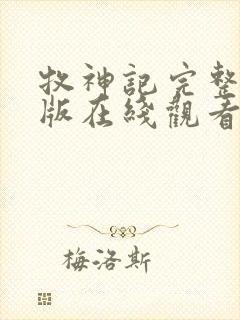 牧神記完整
版在綫觀看
梅洛斯